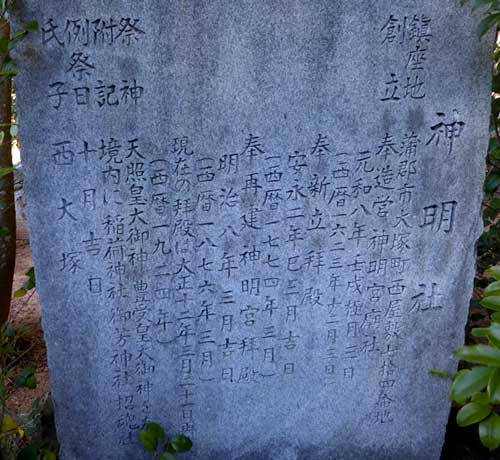 神明社
鎮座地 蒲郡市大塚町西屋敷上拾四番地
創立 奉造営神明宮
元和八年壬戌極月三日
(西暦一六二三年十二月三日)
奉新立拝殿
安永二年巳三月吉日
(西暦一七七四年三月)
奉再建神明宮拝殿
明治八年三月吉日
(西暦一八七六年三月)
現在の拝殿は大正十二年三月二十一日
(西暦一九二四年)
祭神 天照皇大御神 豊受皇大御神
附記 境内に稲荷神社 御芳神社 招魂社
例祭日 十月吉日
氏子 西大塚